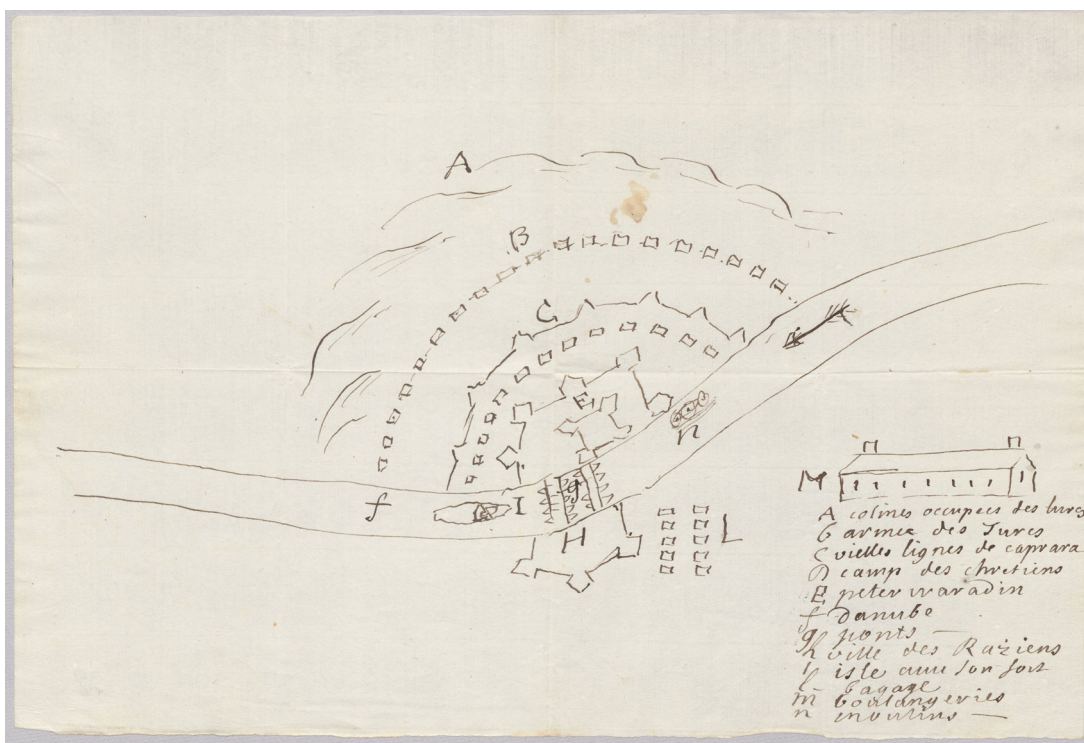 A
B
C
E
n
f
I
g
H
L
M
A colines occupees des turcs
b armee des Turcs
C vielles lignes de caprara
D camp des chretiens
E peter waradin
f danube
g ponts
h ville des Raziens
I isle avec son fort
l bagage
m boulangeries
n moulins